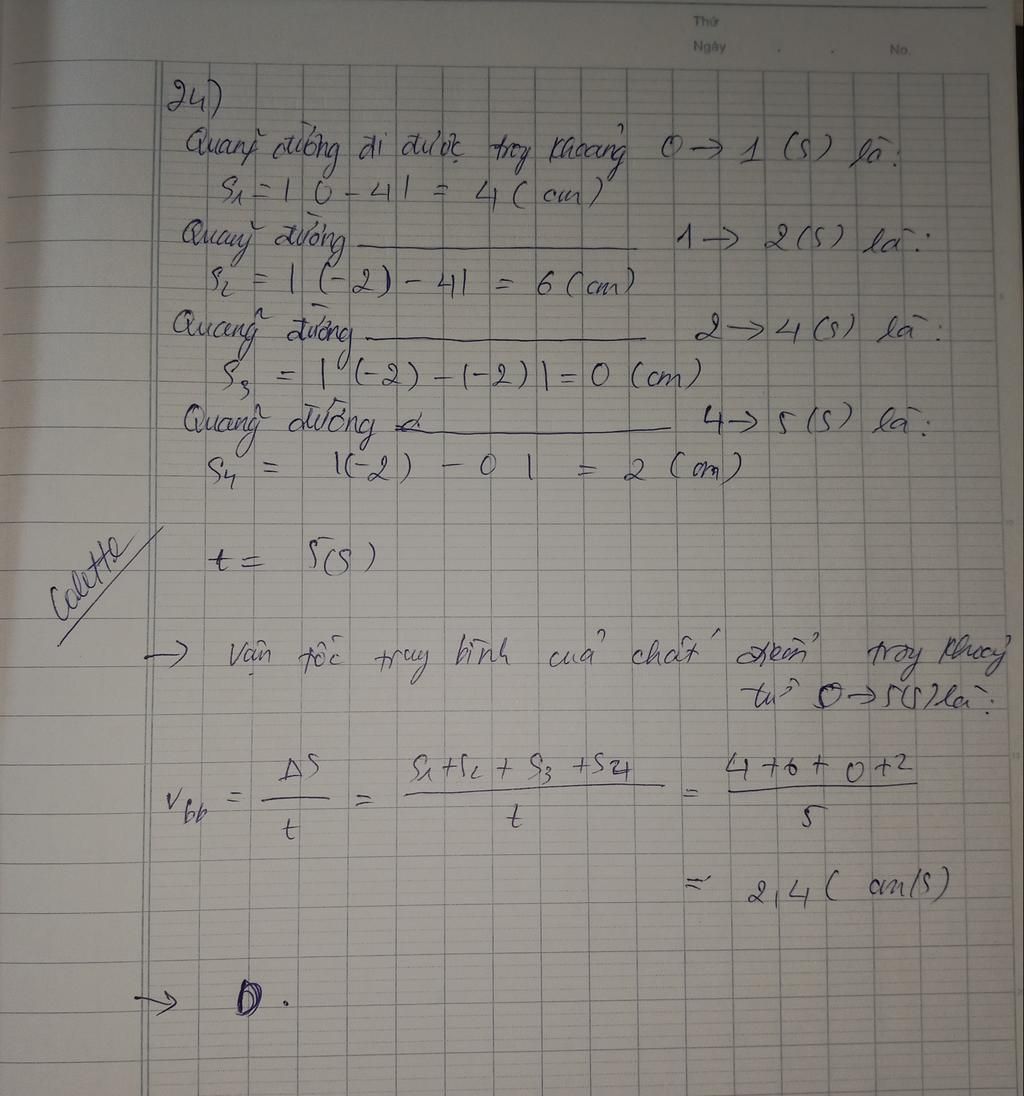 Thứ
Ngày . . No.
24)
Quãng đường đi được trong khoảng 0 → 1 (s) là:
S₁ = | 0 - 4| = 4 ( cm)
Quãng đường ———— 1 → 2 (s) là:
S₂ = | (-2) - 4| = 6 (cm)
Quãng đường ———— 2 → 4 (s) là:
S₃ = | (-2) - (-2) | = 0 (cm)
Quãng đường ———— 4 → 5 (s) là:
S₄ = |(-2) - 0 | = 2 (cm)
t = 5(s)
Colette
→ Vận tốc trung bình của chất điểm trong khoảng
từ 0 → 5(s) là:
v_tb = ΔS / t = S₁ + S₂ + S₃ + S₄ / t = 4 + 6 + 0 + 2 / 5
= 2,4 ( cm/s)
→ D.